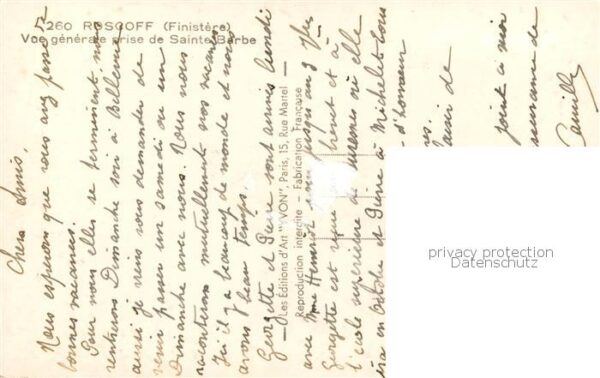 260 ROSCOFF (Finistère)
Vue générale prise de Sainte-Barbe
Chers Amis,
Nous esperons que vous avez passé de
bonnes vacances.
Pour nous elles se terminent nous
rentrerons Dimanche soir à
aussi je viens vous demander de
venir passer un samedi ou un
Dimanche avec nous. Nous nous
raconterons mutuellement nos vacances
Ici il y a beaucoup de monde et nous
avons beau temps.
Georgette et Pierre sont arrivés lundi
avec Mme jusqu'au 3
Georgette est reçue au brevet et à
l'école supérieure de Suresnes où elle
ira en Octobre et Pierre à Michelet. Tous
d'honneur
de
joint à moi
de
Camille
Les Editions d'Art "YVON", Paris, 15, Rue Martel
Reproduction interdite - Fabrication Française
privacy protection
Datenschutz